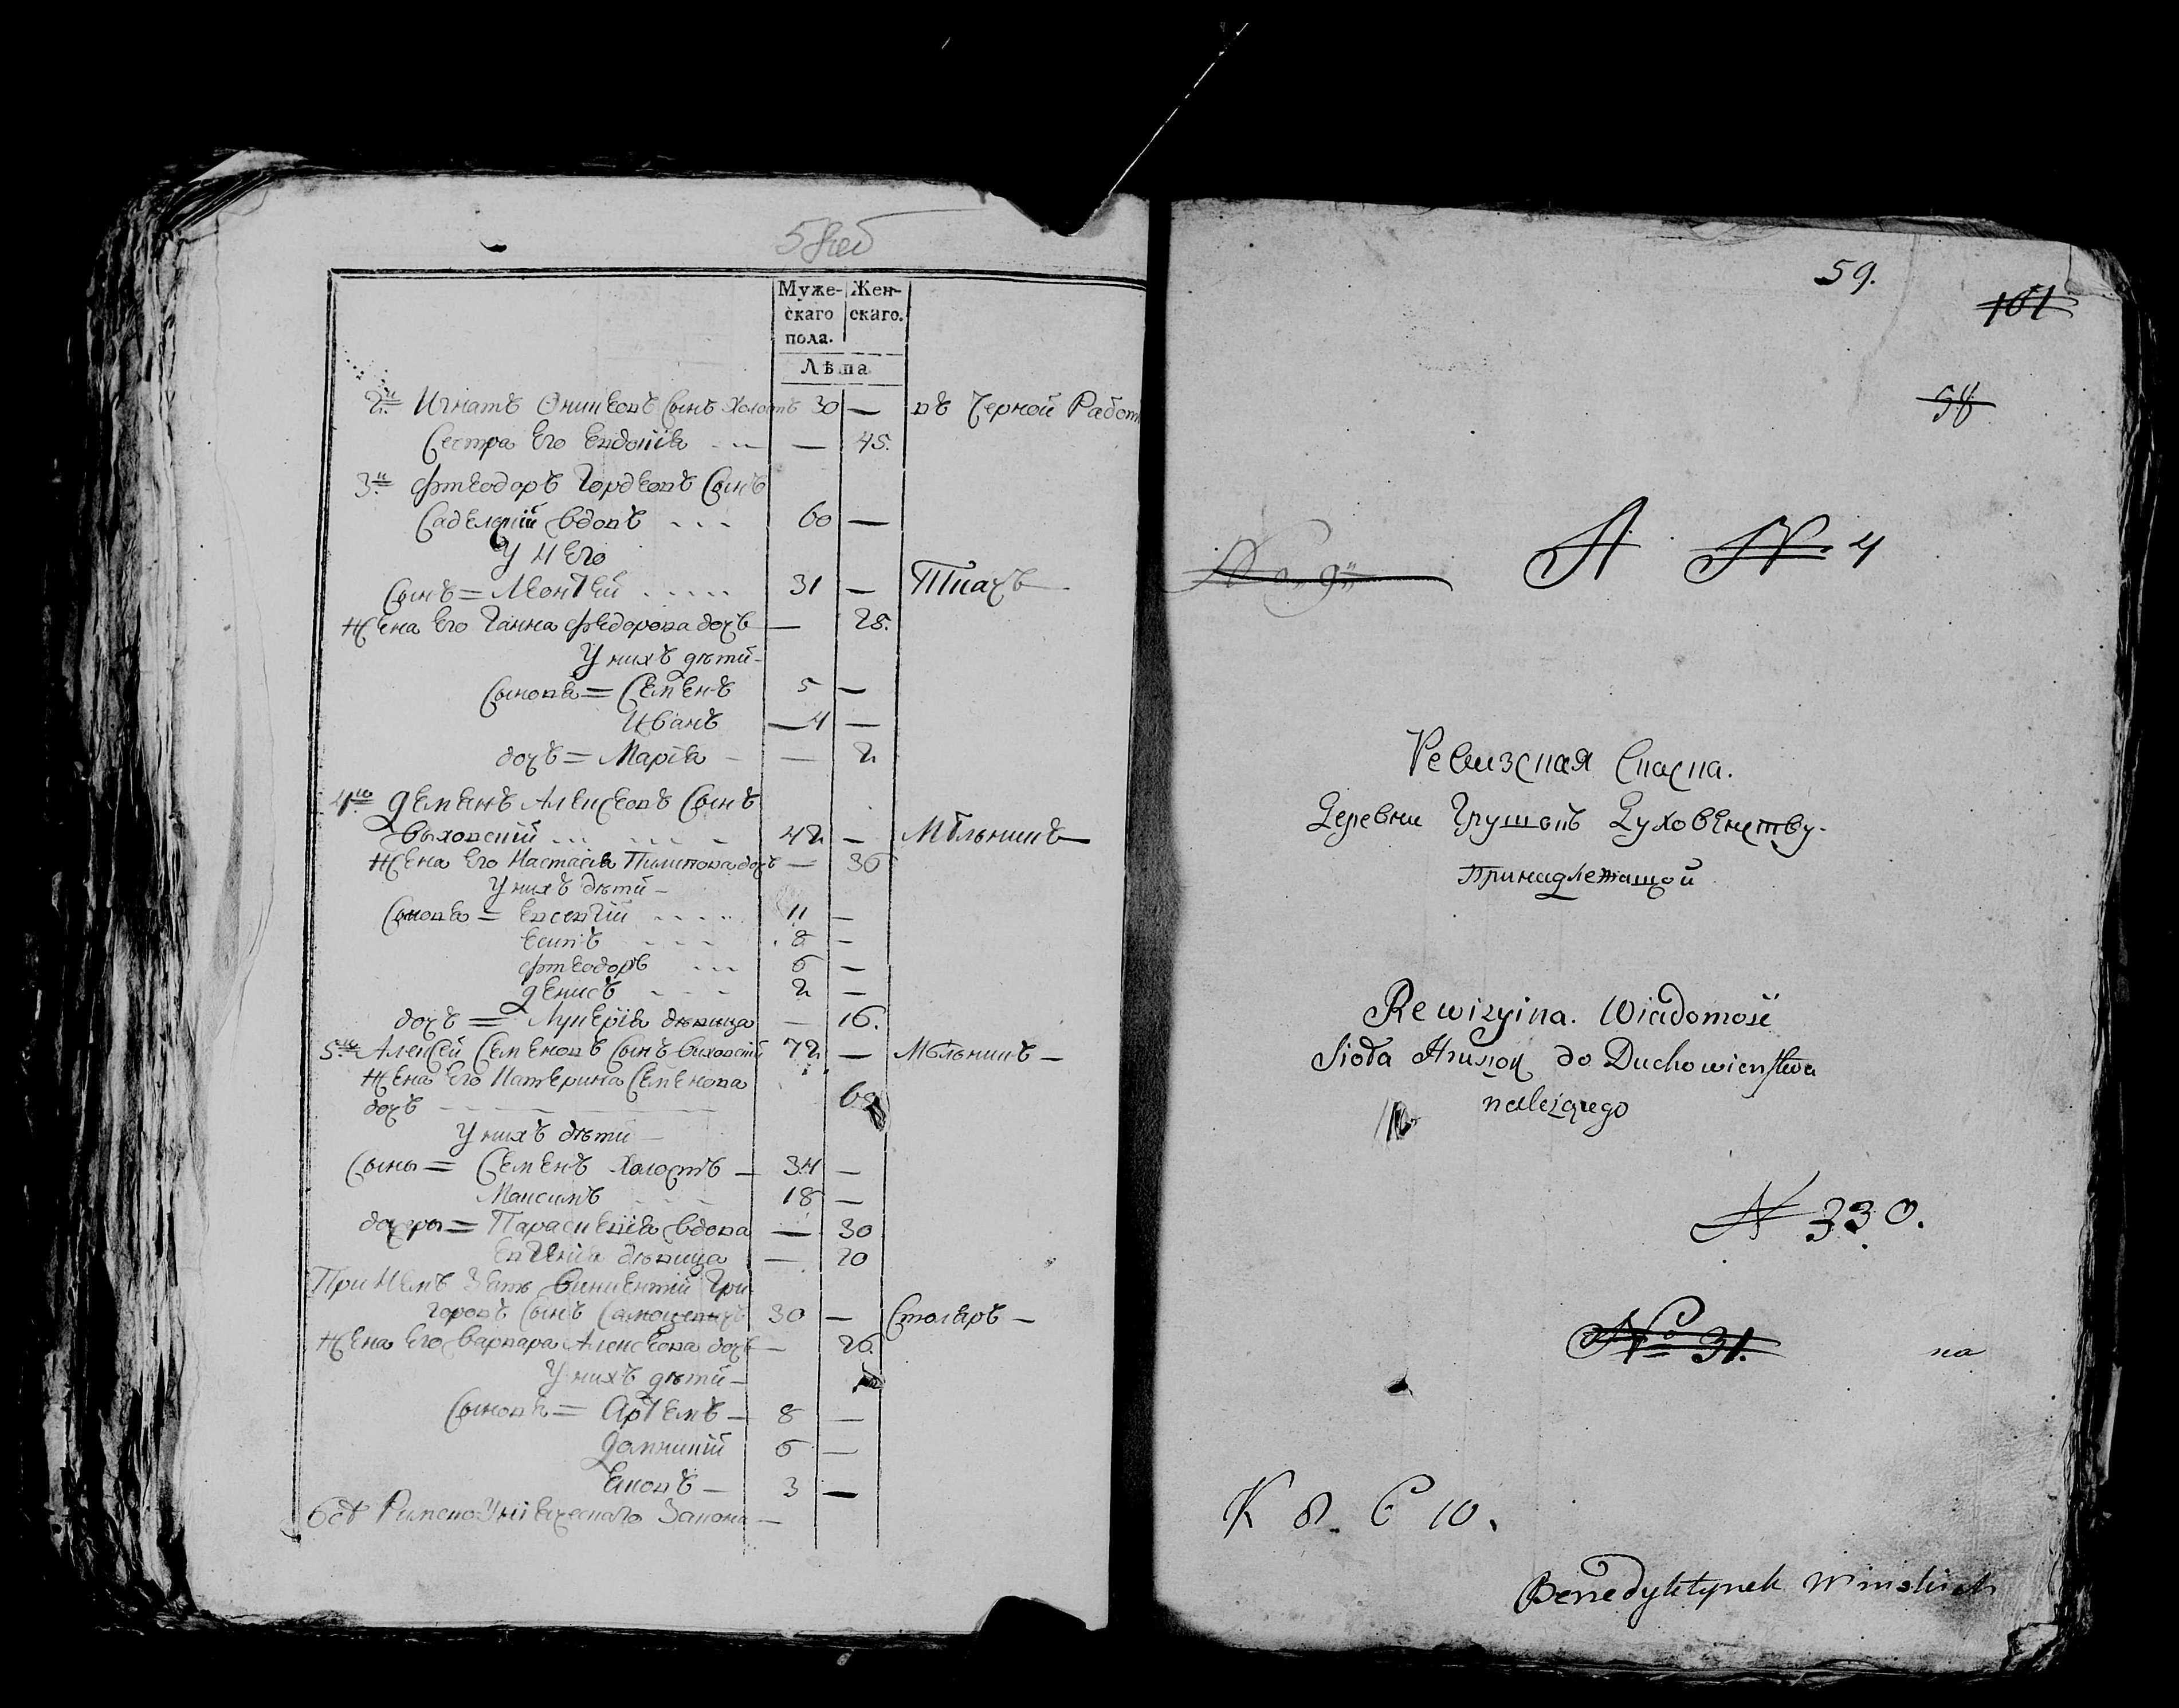 58 об
Муже- Жен-
скаго скаго.
пола.
Лѣта
2й Игнатъ Ониковъ сынъ холостъ 30 — въ Черной Работ
Сестра Его Евдокія — 45.
3й Фтеодоръ Гордеовъ Сынъ
Вдовъ 60 —
У Него
Сынъ = Леонтей 31 — Ткачъ
Жена Его Ганна Федорова дочъ — 28.
У нихъ дѣти
Сыновя = Семенъ 5 —
Иванъ — 4 —
дочъ = Марія — 2
4й Деменъ Алексеовъ Сынъ
Быховскій 42 — Мѣльникъ —
Жена Его Настасія Пилипова дочъ — 36
У нихъ дѣти —
Сыновя = Евсевій 11 —
Есипъ 8 —
Фтеодоръ 6 —
Денисъ 2 —
дочъ = Лукерія дѣвица — 16.
5й Алексей Семеновъ Сынъ Быховскій 72 — Мѣльникъ —
Жена Его Катерина Семенова
дочъ 60
У нихъ дѣти —
Сыны = Семенъ Холостъ — 34 —
Максимъ 18 —
дочеры = Парасцевія вдова — 30
Евгенія дѣвица — 20
При Немъ Зять Викентій Гри
горовъ Сынъ 30 — Столяръ —
Жена Его Варвара Алексеова дочъ — 26.
У нихъ дѣти —
Сыновя = Артемъ — 8 —
Доминикій 6 —
Яковъ — 3 —
бсѣ Римско-Уніяческаго Закона —
59.
101
58
A № 4
Ревизская Сказка.
Деревни Грушокъ Духовенству.
Принадлежащой
Rewizyina. Wiadomość
Sioła Hruszok do Duchowienstwa
należącego
N 330.
№ 31.
na
К 8. С 10.
Benedyktynek Minskich